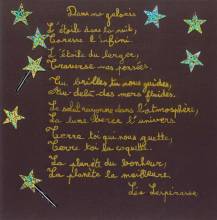 Dans ma galaxie
L'étoile dans la nuit,
Caresse l'infini.
L'étoile du berger,
Traverse mes pensées.
Tu brilles, tu nous guides,
Au delà des mers fluides.
Le soleil rayonne dans l'atmosphère,
La lune berce l'univers.
Terre toi qui nous guette,
Terre toi la coquette...
La planète du bonheur,
La planète la meilleure.
Léa Lespinasse